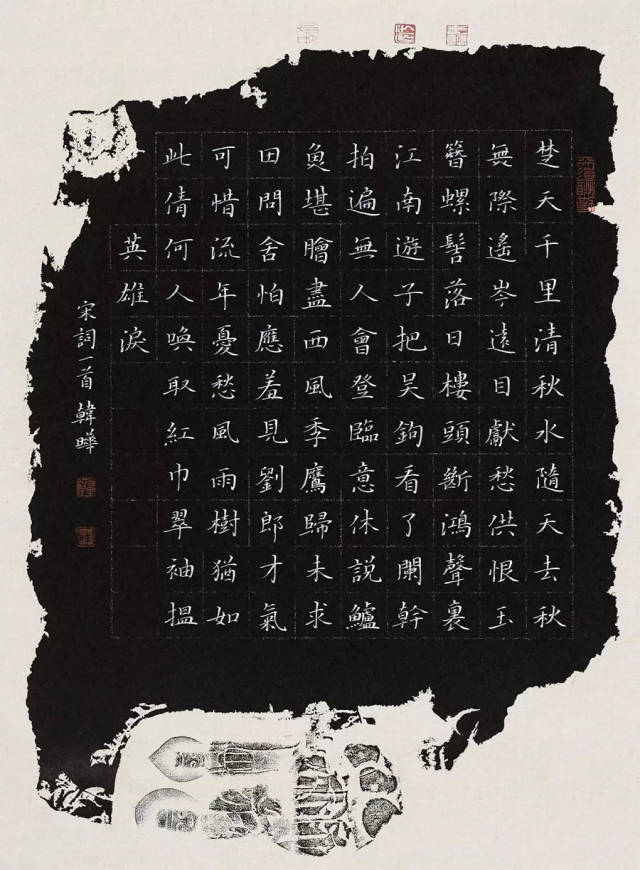 楚天千里清秋水隨天去秋
無際遙岑遠目獻愁供恨玉
簪螺髻落日樓頭斷鴻聲裏
江南遊子把吳鉤看了闌幹
拍遍無人會登臨意休説鱸
魚堪膾盡西風季鷹歸未求
田問舍怕應羞見劉郎才氣
可惜流年憂愁風雨樹猶如
此倩何人喚取紅巾翠袖揾
英雄淚
宋詞一首 韓曄